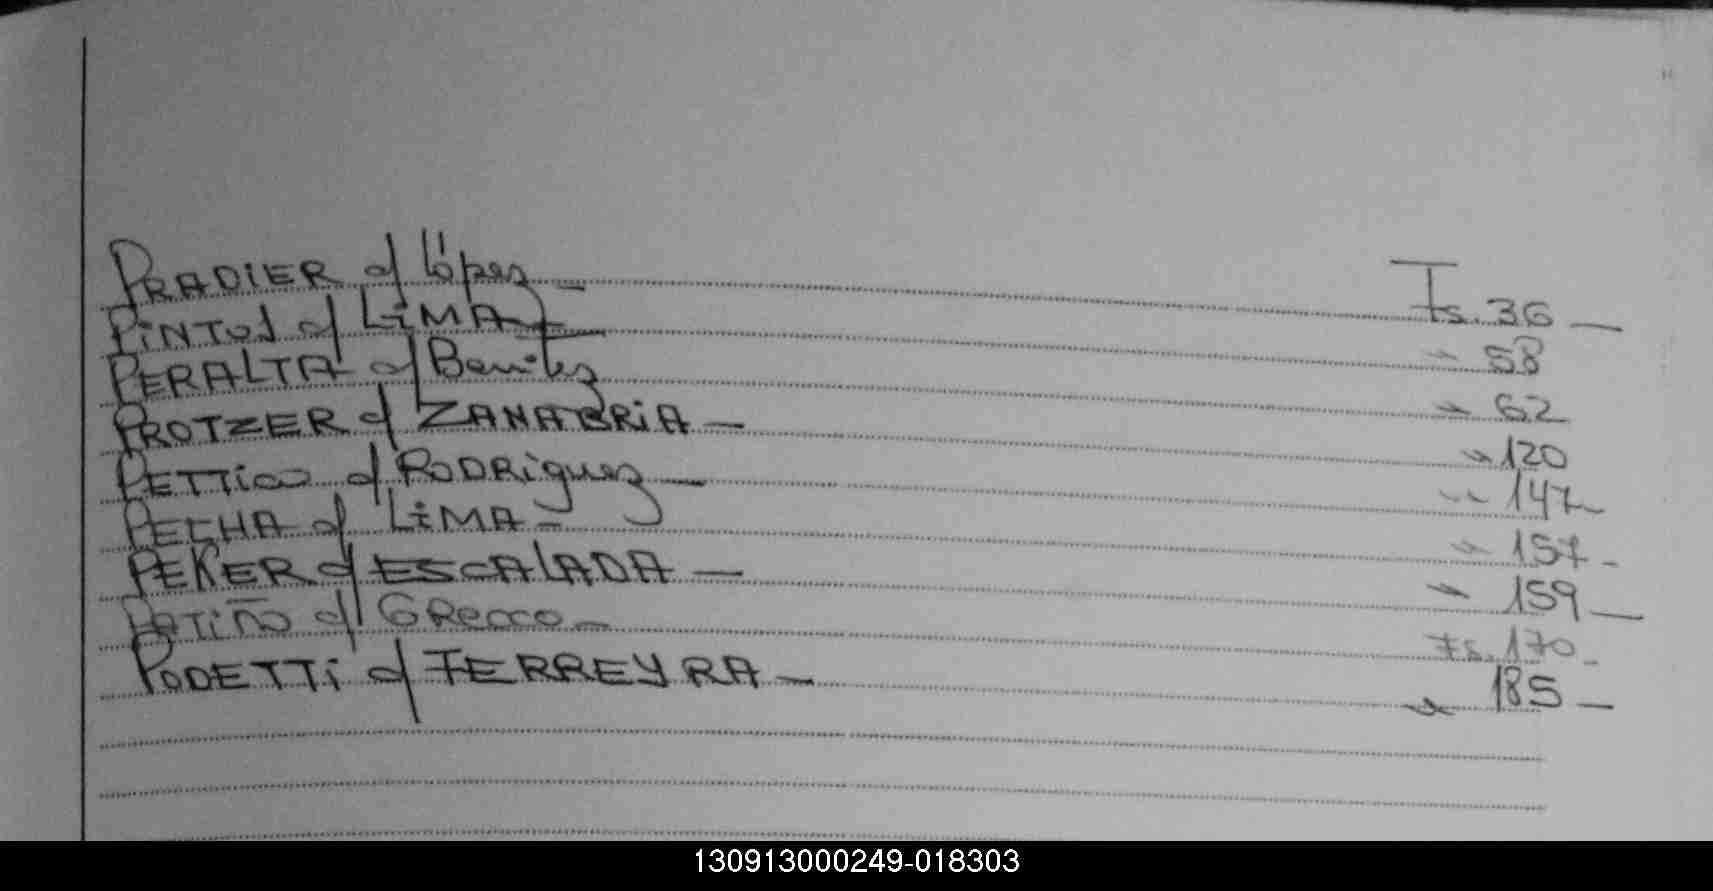 PRADIER c/ López — Fs. 36 —
PINTOS c/ LIMA — " 58
PERALTA c/ Benítez " 62
PROTZER c/ ZANABRIA — " 120
c/ RODRíguez — " 147 —
PECHA c/ LIMA — " 157 -
PEKER c/ ESCALADA — " 159 —
PATIÑO c/ GRECCO — Fs. 170 -
PODETTI c/ FERREYRA — " 185 —
130913000249-018303